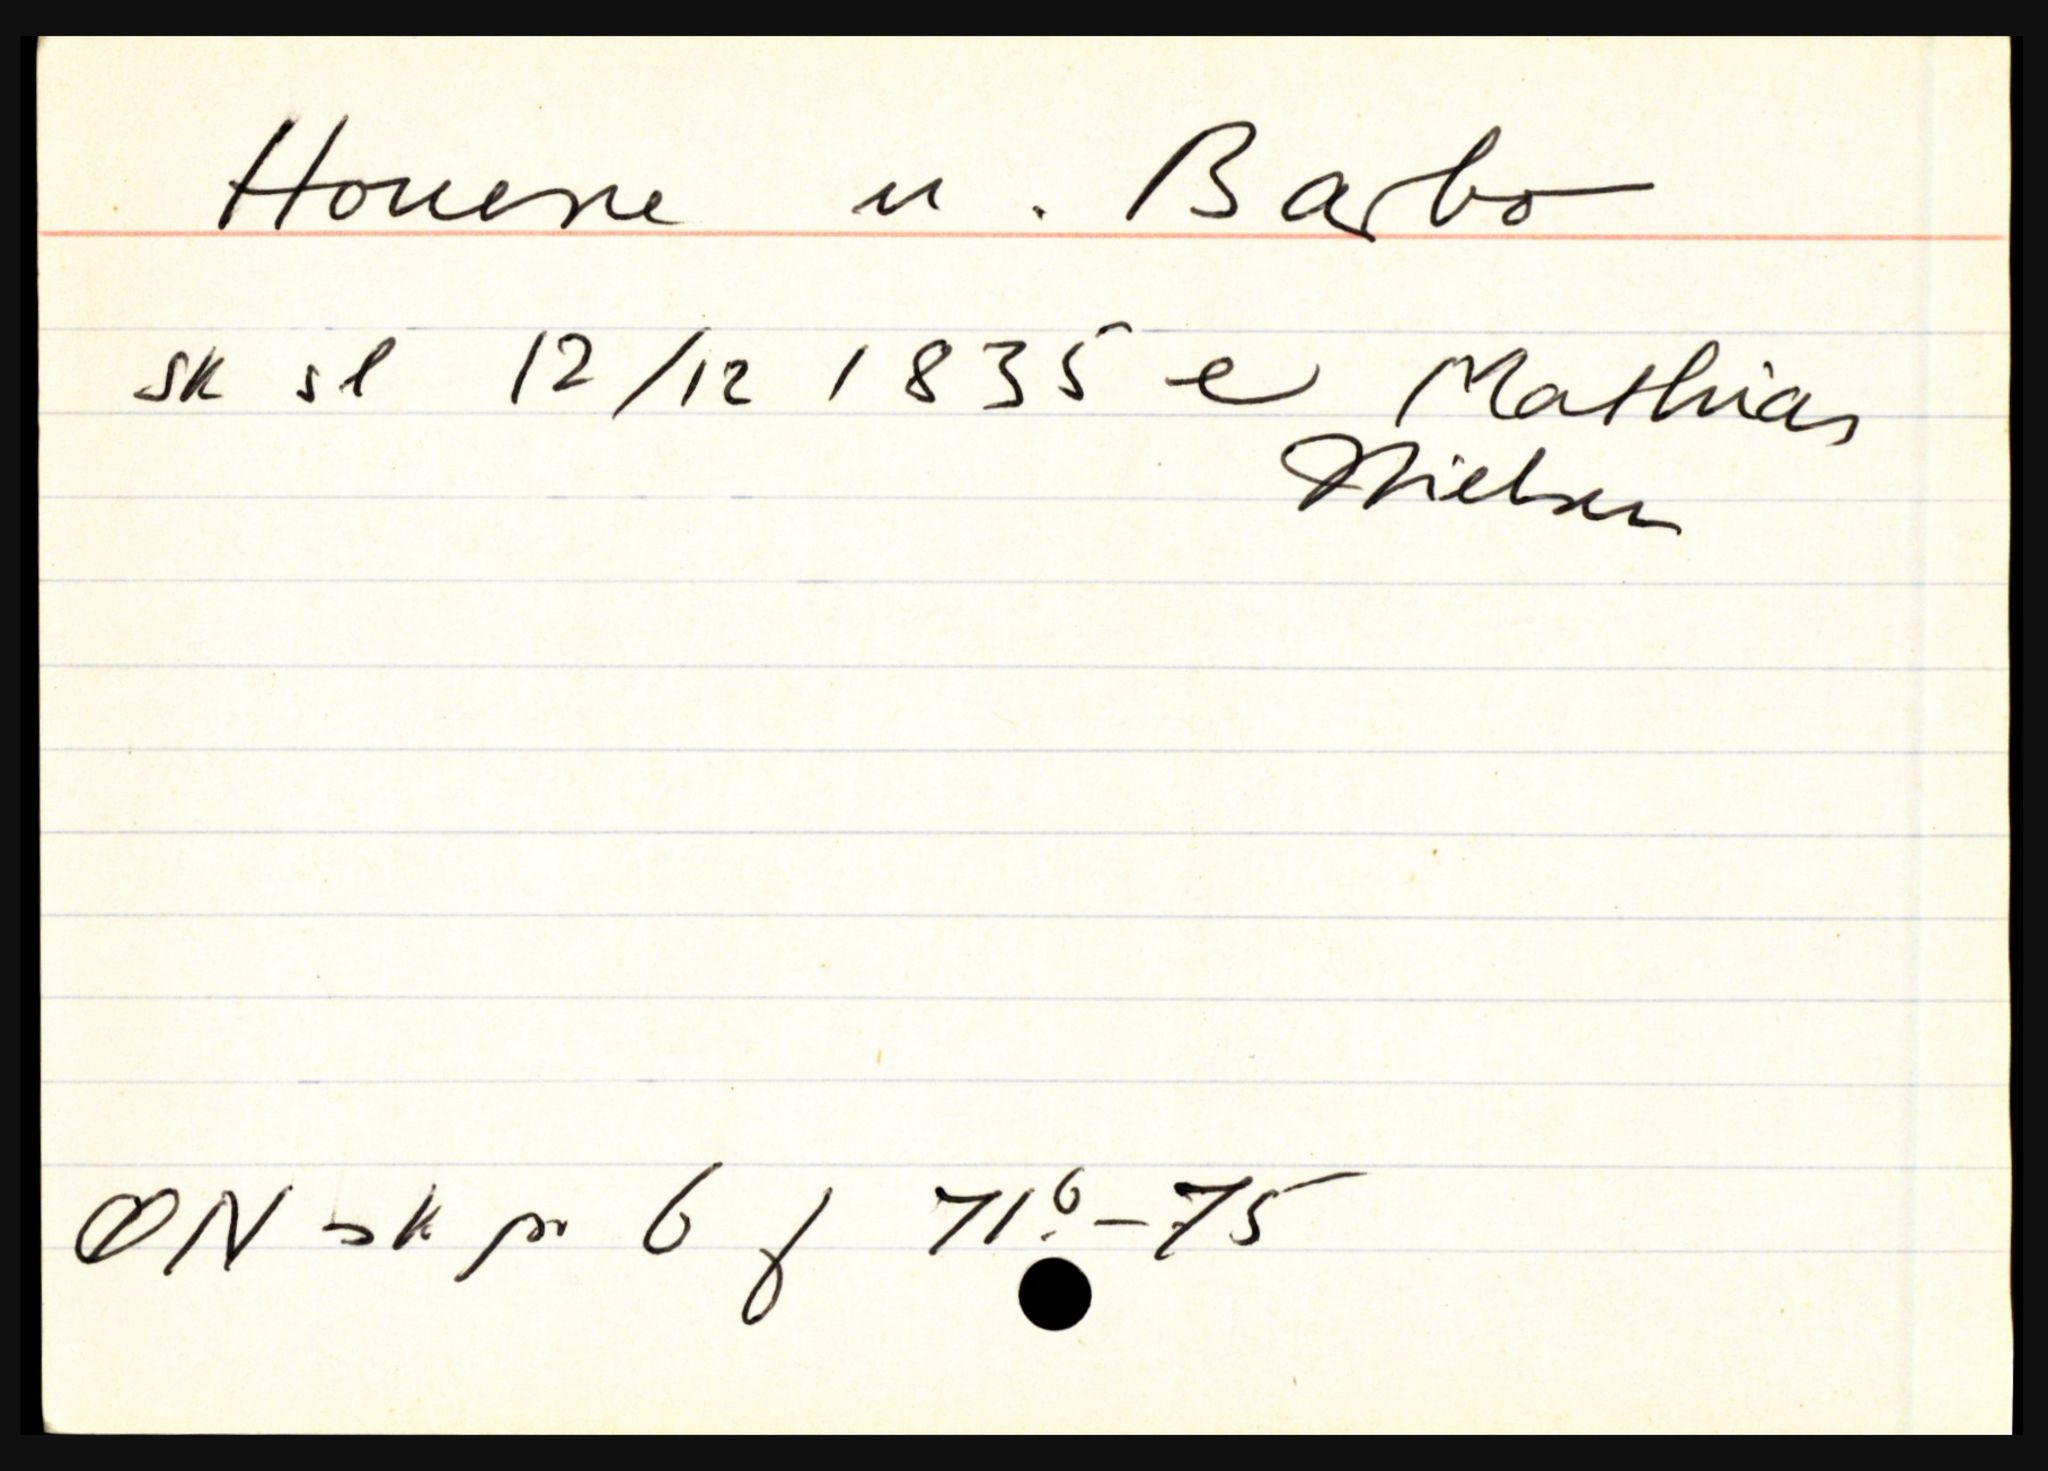 Hovene u. Barbo
sk sl 12/12 1835 e Mathias
Nielsen
ØN sk pr 6 f 71b-75